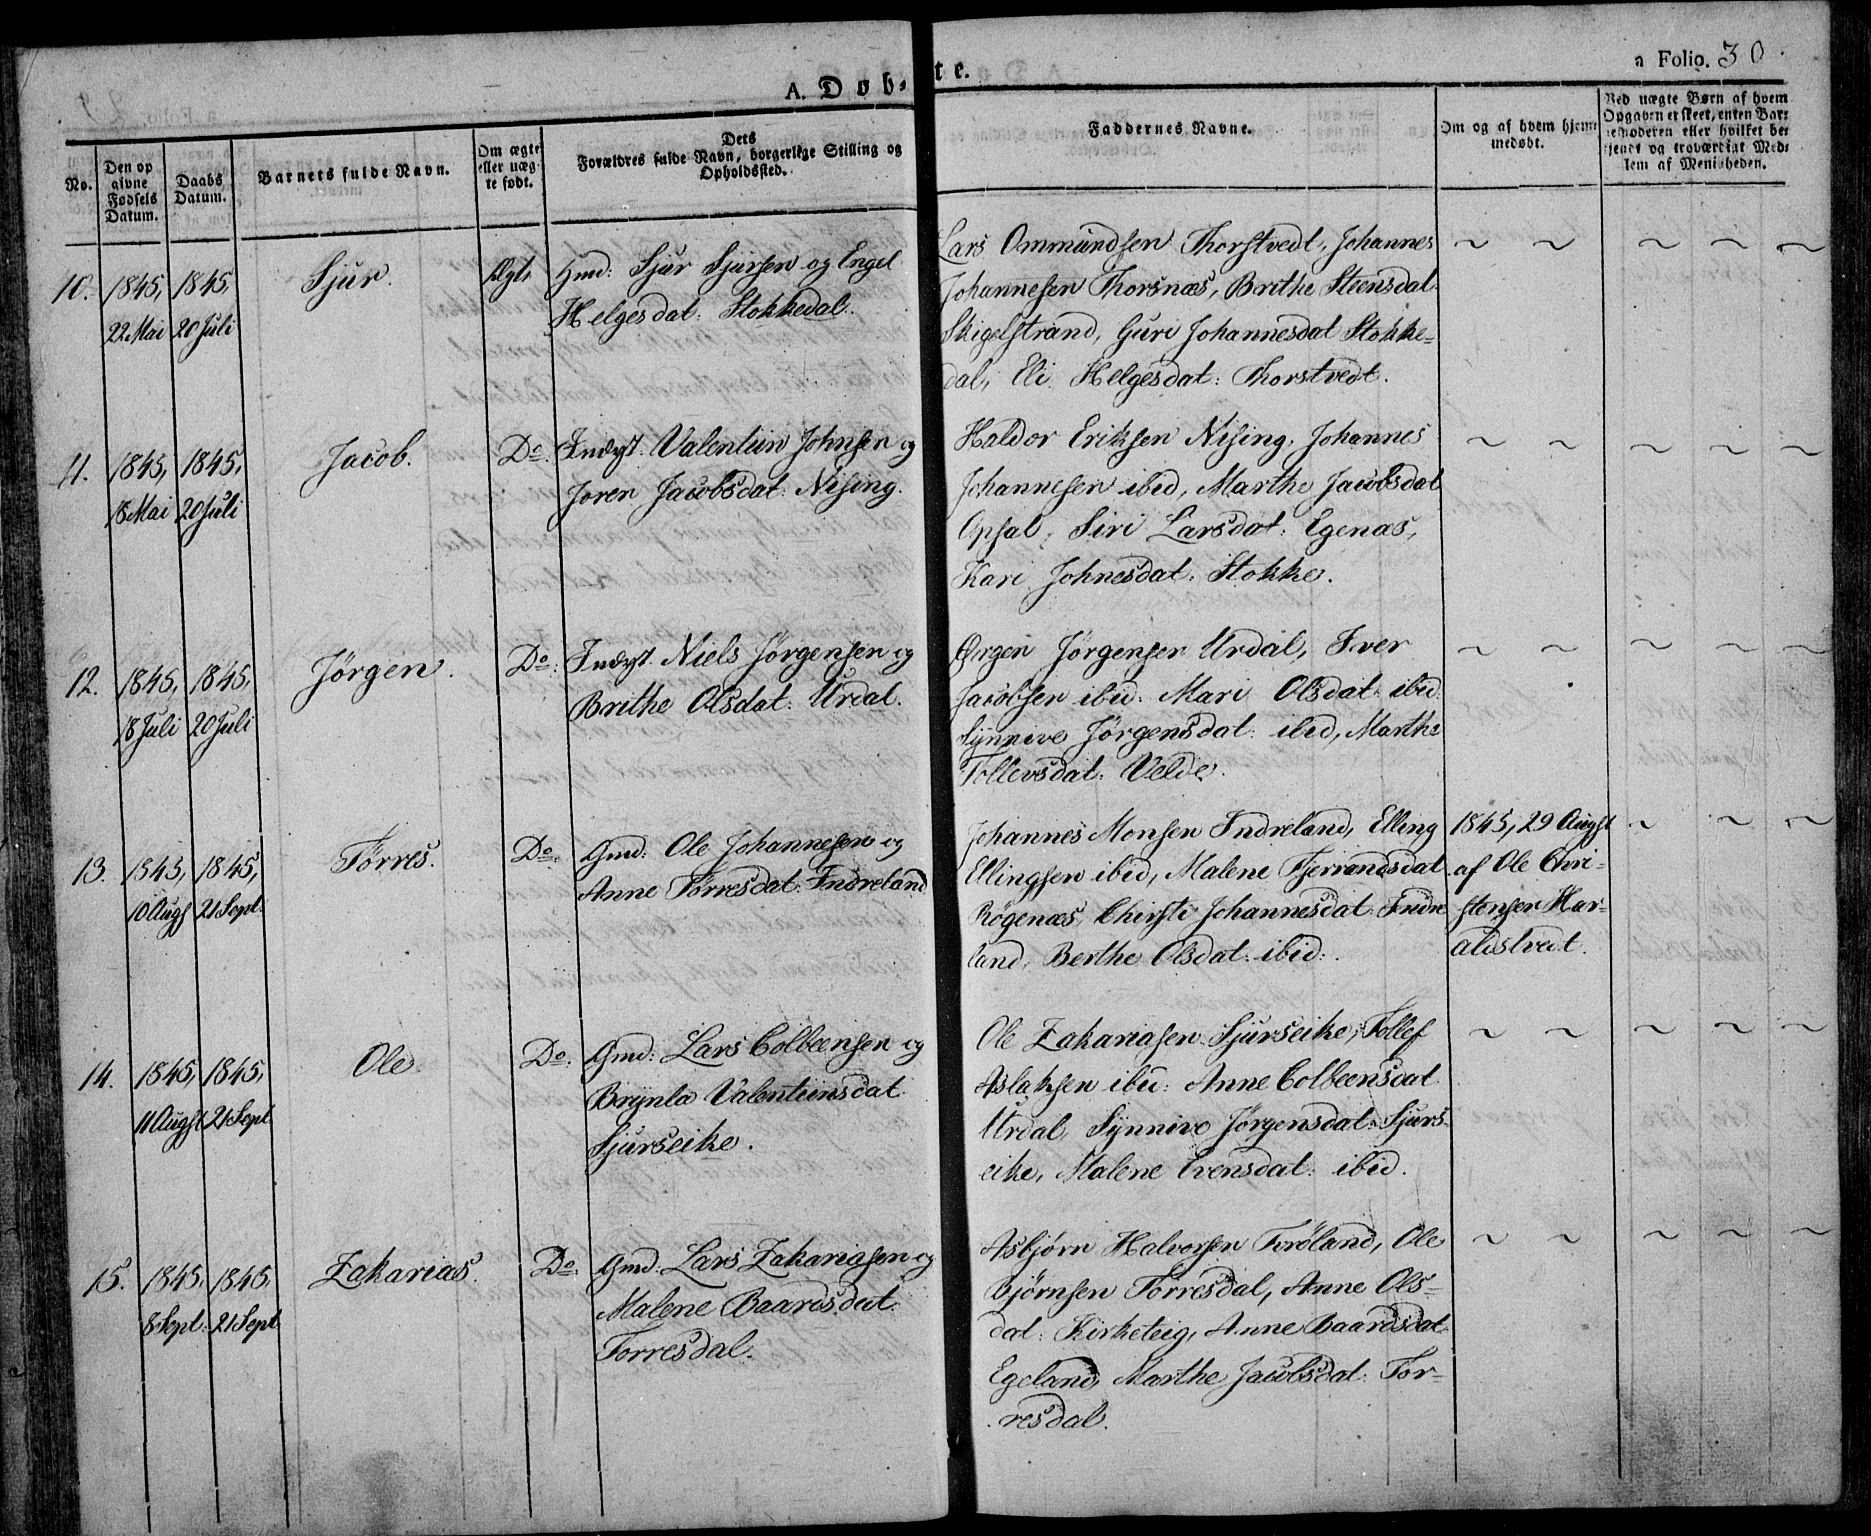 A. Døb-
te.
a Folio. 30.
No.
Den op
givne
Fødsels
Datum.
Daabs
Datum.
Barnets fulde Navn.
Om ægte
eller uæg-
te født.
Dets
Forældres fulde Navn, borgerlige Stilling og
Opholdssted.
Faddernes Navne.
Om og af hvem hjem-
medøbt.
Ved uægte Børn af hvem
Opgaven er skeet, enten Bar-
nemoderen eller hvilket be-
kjendt og troværdigt Med-
lem af Menigheden.
10. 1845, 1845,
22 Mai 20 Juli
Sjur.
Ægte
Gmd: Sjur Sjursen og Engel
Helgesdat: Stokkedal.
Lars Ommundsen Thorstvedt, Johannes
Johannesen Thorsnæs, Brithe Steensdat
Skigelstrand, Guri Johannesdat Stokke-
dal, Eli Helgesdat: Thorstvedt.
~ ~ ~ ~ ~
11. 1845, 1845,
18 Mai 20 Juli
Jacob.
Do.
Indgst. Valentiin Johnsen og
Joren Jacobsdat: Nising.
Haldor Eriksen Nising, Johannes
Johannesen ibid, Marthe Jacobsdat
Opsal, Siri Larsdat: Egenæs,
Kari Johnesdat: Stokke.
~ ~ ~ ~ ~
12. 1845, 1845,
18 Juli 20 Juli
Jørgen.
Do:
Indgst. Niels Jørgensen og
Brithe Olsdat: Urdal.
Ørgen Jørgensen Urdal, Iver
Jacobsen ibid: Mari Olsdat: ibid.
Synnive Jørgensdat: ibid, Marthe
Tollevsdat: Velde.
~ ~ ~ ~ ~
13. 1845, 1845,
10 Augst 21 Sept.
Tørres.
Do.
Gmd: Ole Johannesen og
Anne Tørresdat: Indreland
Johannes Monsen Indreland, Elling
Ellingsen ibid, Malene Tjerrandsdat
Røgenæs, Chirsti Johannesdat: Indre
land, Berthe Olsdat: ibid:.
1845, 29 Augst
af Ole Chri-
stensen Har-
aldstvedt.
~ ~ ~
14. 1845, 1845,
11 Augst 21 Sept
Ole.
Do.
Gmd: Lars Colbeensen og
Brynla Valentiinsdat
Sjurseike.
Ole Zakariasen Sjurseike, Tollef
Aslaksen ibid: Anne Colbeensdat
Urdal, Synnive Jørgensdat: Sjurs-
eike, Malene Evensdat: ibid.
~ ~ ~ ~ ~
15. 1845, 1845,
8 Sept. 21 Sept
Zakarias.
Do.
Gmd: Lars Zakariasen og
Malene Baardsdat:
Torresdal.
Asbjørn Halvorsen Forøland, Ole
Bjørnsen Torresdal, Anne Ols-
dat: Kirketeig, Anne Baardsdat
Egeland, Marthe Jacobsdat: Tor-
resdal.
~ ~ ~ ~ ~